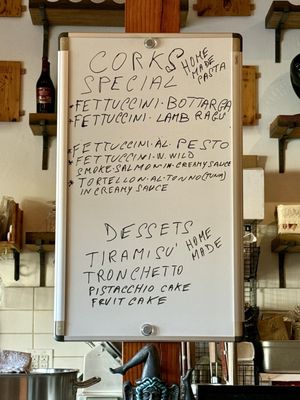 CORKS HOME MADE PASTA
SPECIAL
• FETTUCCINI • BOTTARGA
• FETTUCCINI • LAMB RAGÚ
• FETTUCCINI • AL PESTO
• FETTUCCINI • W. WILD
SMOKE • SALMON • IN • CREAMY SAUCE
• TORTELLONI • AL • TONNO (TUNA)
IN CREAMY SAUCE
DESSETS
TIRAMISU' HOME MADE
TRONCHETTO
PISTACCHIO CAKE
FRUIT CAKE